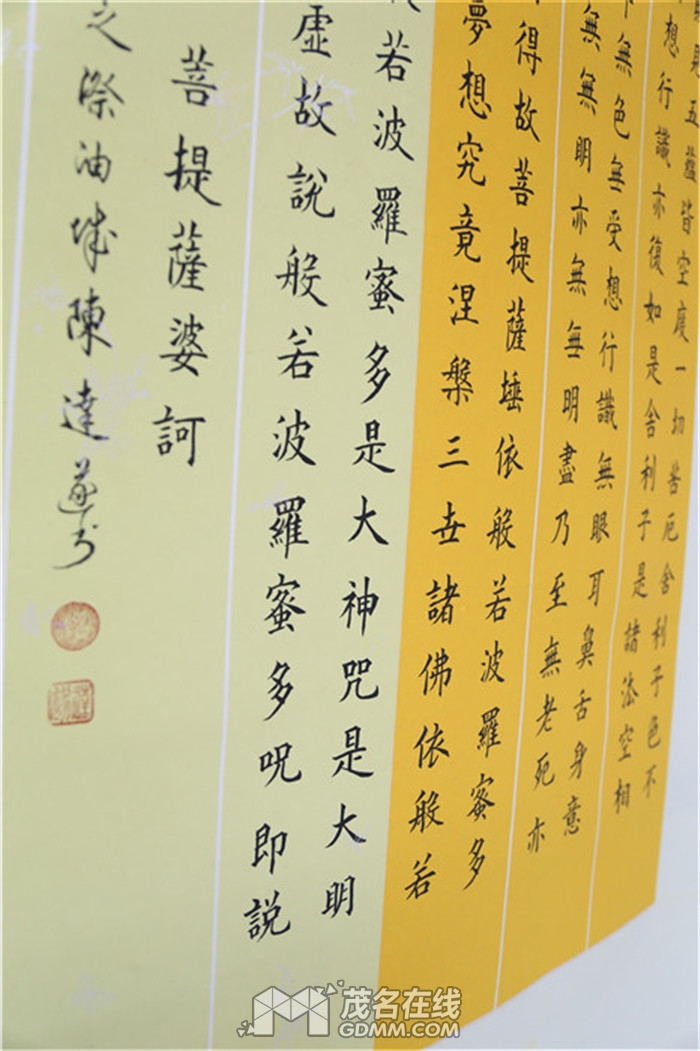 見五蘊皆空度一切苦厄舍利子色不
想行識亦復如是舍利子是諸法空相
無色無受想行識無眼耳鼻舌身意
無無明亦無無明盡乃至無老死亦
得故菩提薩埵依般若波羅蜜多
夢想究竟涅槃三世諸佛依般若
若波羅蜜多是大神咒是大明
虛故說般若波羅蜜多呪即説
菩提薩婆訶
之際油城陳達
茂名在线
GDMM.COM